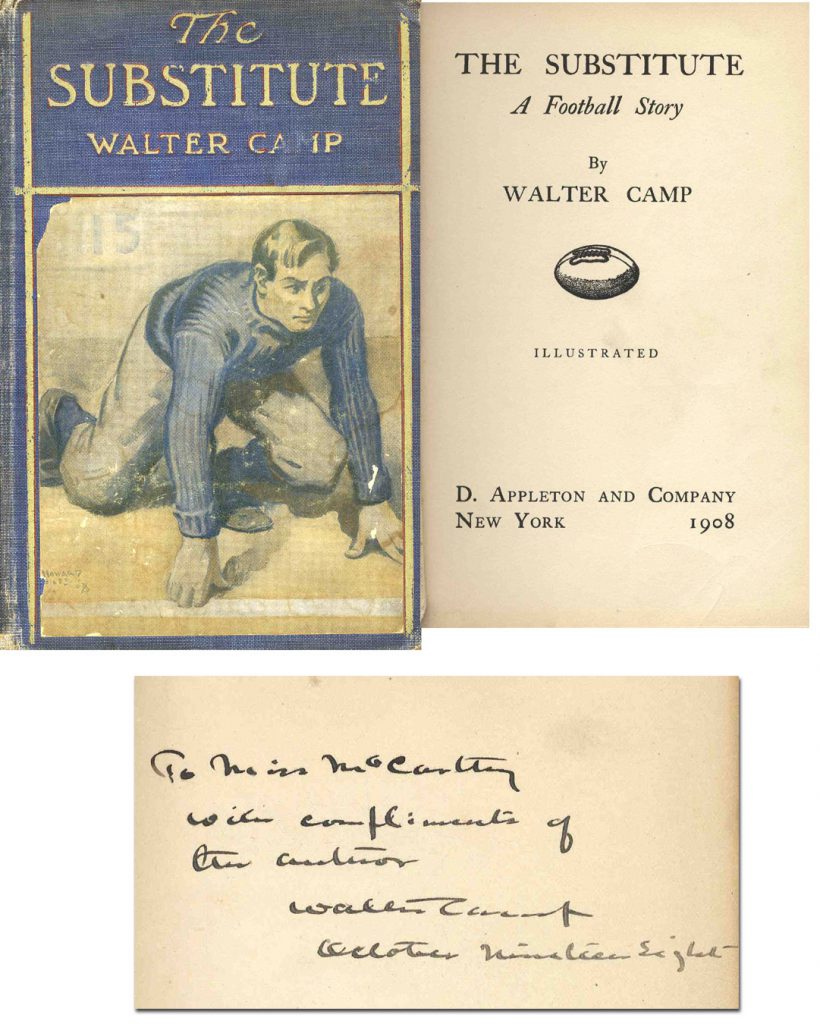 The
SUBSTITUTE
WALTER CAMP
15
HOWARD
THE SUBSTITUTE
A Football Story
By
WALTER CAMP
ILLUSTRATED
D. APPLETON AND COMPANY
NEW YORK 1908
To Miss McCarthy
with compliments of
the author
Walter Camp
October Nineteen Eight